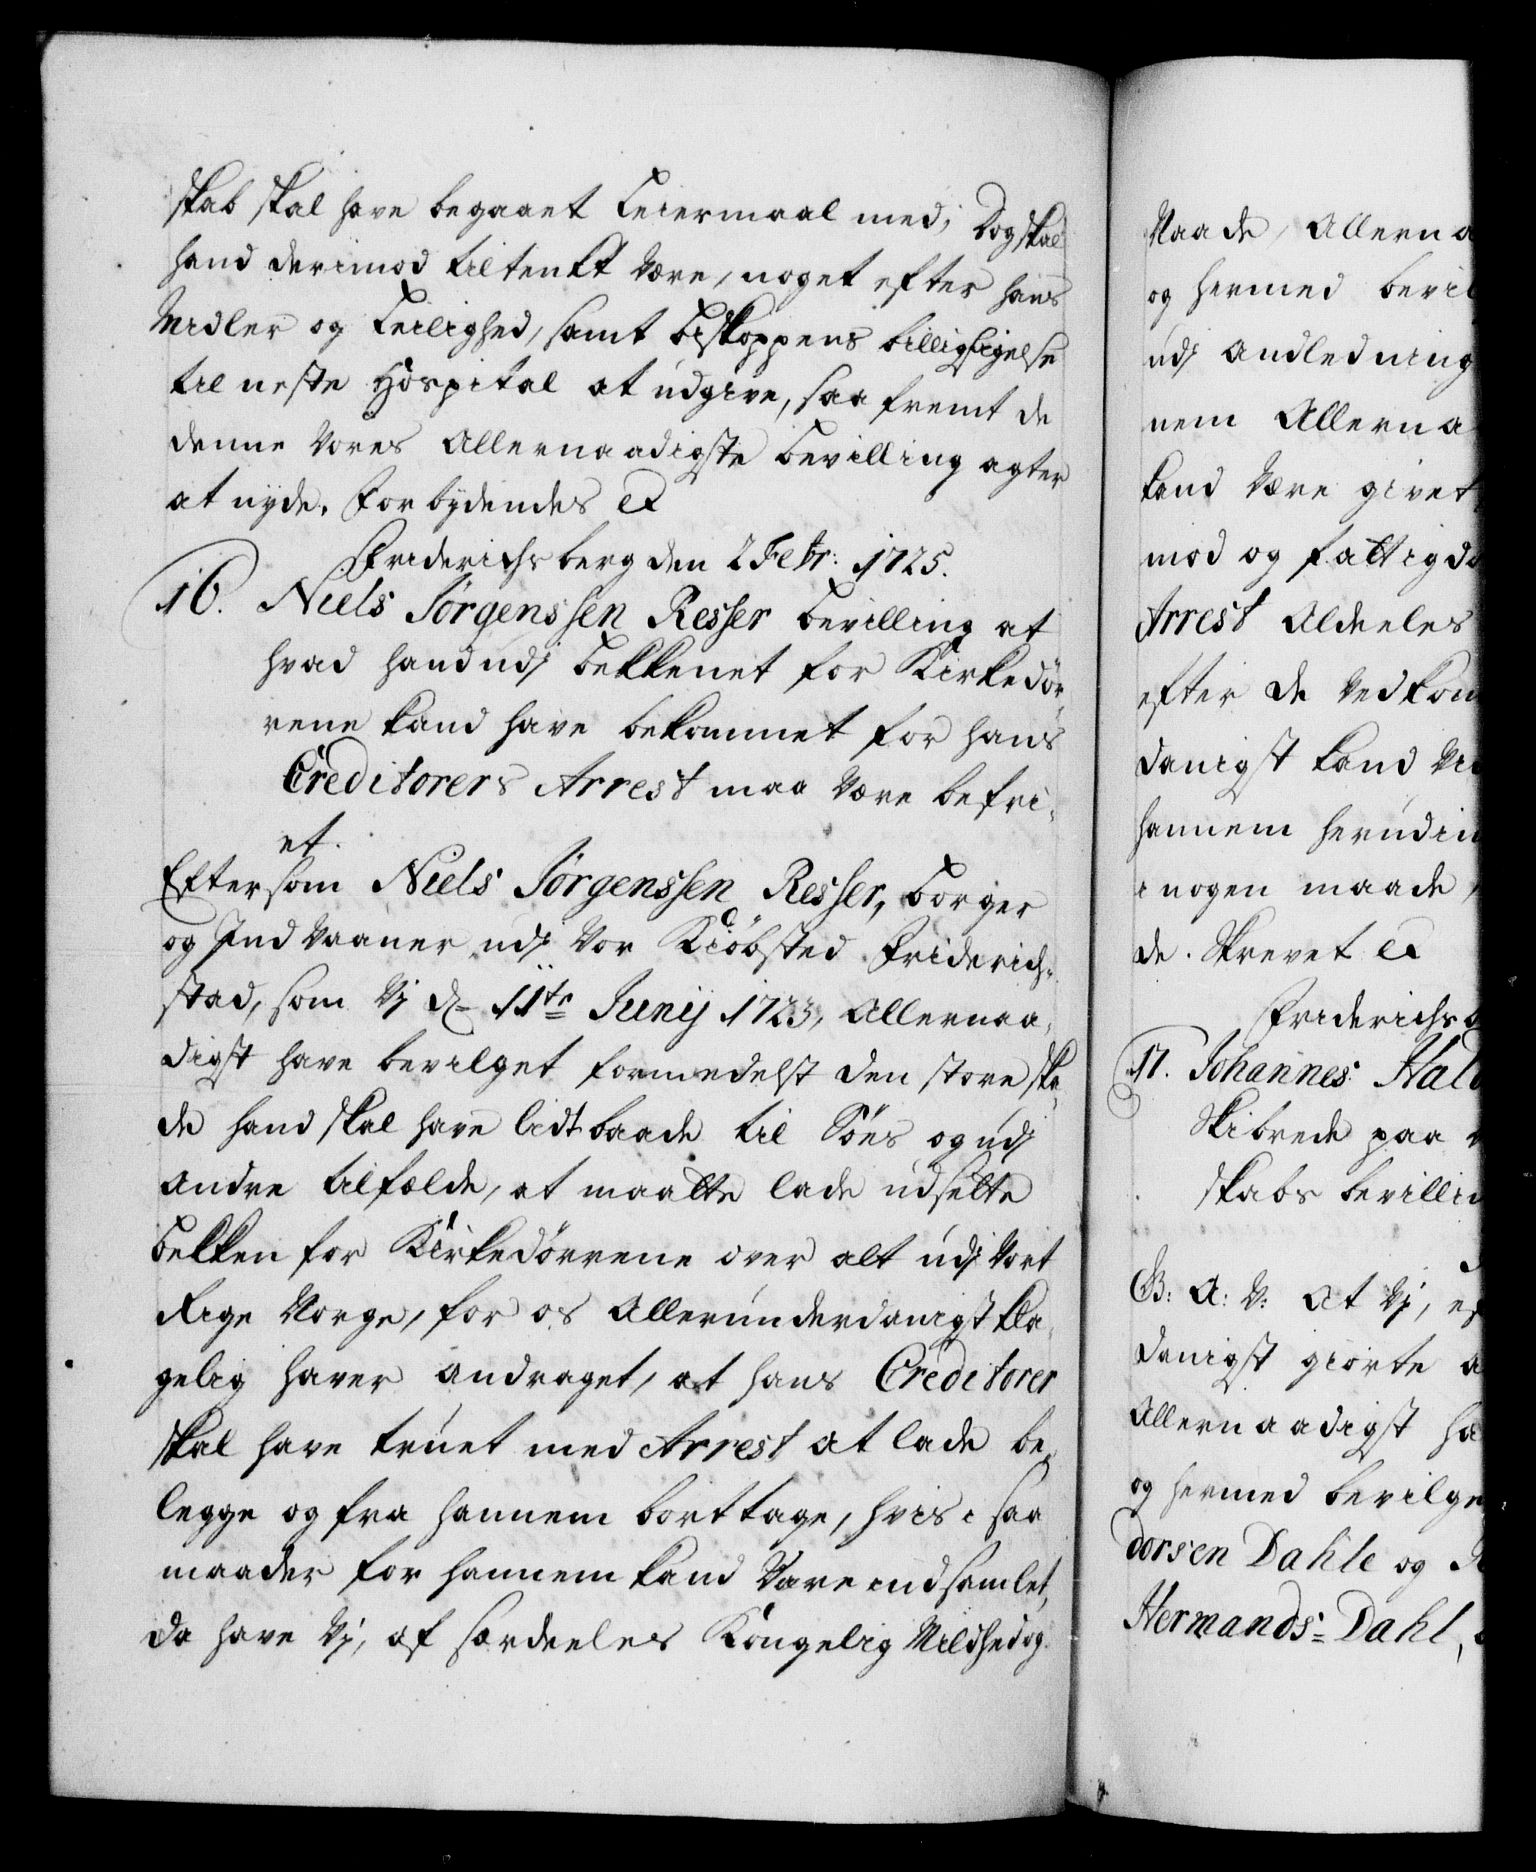 skab skal have begaaet Leiermaal med; Dog skal
hand derimod tiltenkt være, noget efter hans
Midler og Leilighed, samt Biskoppens billigsigelse
til neste Hospital at udgive, saa fremt de
denne Vores Allernaadigste Bevilling agter
at nyde. Forbydendes &
Friderichsberg den 2 Febr: 1725.
16. Niels Jørgenssen Resser Bevilling at
hvad hand udj Bekkenet for Kirkedør,
rene kand have bekommet for hans
Creditorers Arrest maa være befri,
et.
Eftersom Niels Jørgenssen Resser, borger
og Indvaaner udj Vor Kiøbsted Friderich,
stad, som Vj d. 11te Junij 1723, Allernaa,
digst have bevilget formedelst den store ska,
de hand skal have lidt baade til Søes og udj
andre tilfælde, at maatte lade udsette
Bekken for Kirkedørrene over alt udj Vort
Rige Norge, for os Allerunderdanigst kla,
gelig haver andraget, at hans Creditorer
skal have truet med Arrest at lade be,
legge og fra hannem borttage, hvis i saa
maader for hannem kand være indsamlet,
da have Vj, af særdeeles Kongelig Mildhed og
Naade, Allerna
og hermed bevil
udj andledning
nem Allerna
kand være givet
mod og fattigdo
Arrest Aldeeles
efter de vedkom
danigst kand
hannem herudin
i nogen maade
de. Skrevet &
Friderichsb
17. Johannes Hal
Skibrede paa
skabs bevillin
G: A: V: At Vj, ef
danigst giorte a
Allernaadigst ha
og hermed bevilge
dorsen Dahle og
Hermands=Dahl,